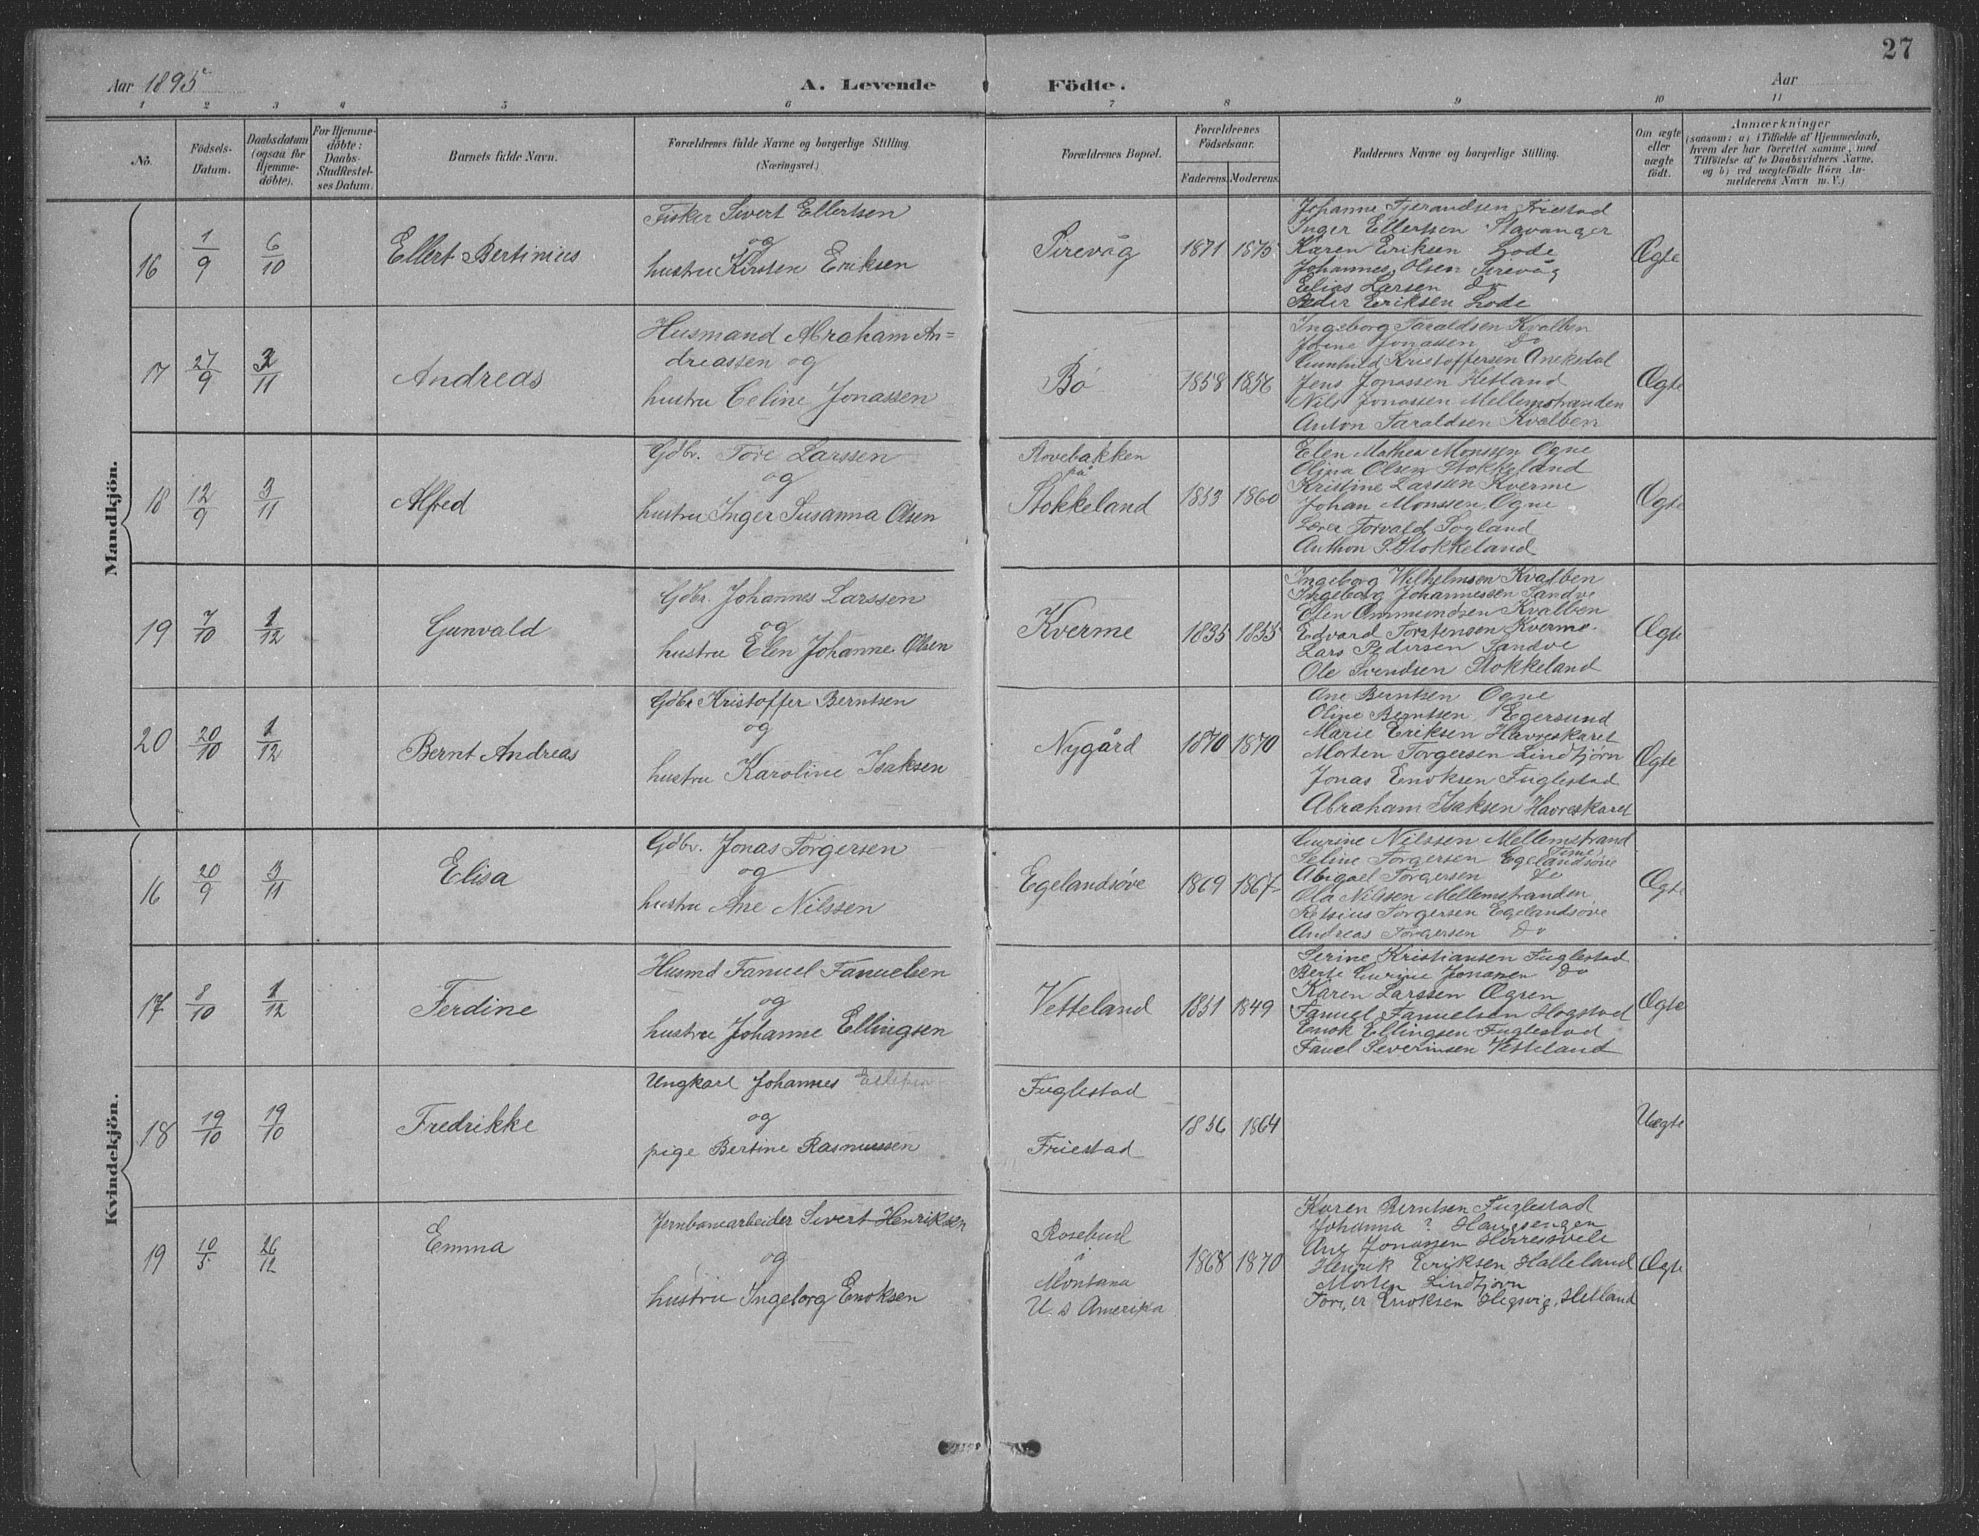 27
Aar 1895
A. Levende
Födte.
Aar
1 2 3 4 5 6 7 8 9 10 11
No.
Födsels-
Datum.
Daabsdatum
(ogsaa for
Hjemme-
döbte).
For Hjemme-
döbte:
Daabs-
Stadfæstel-
ses Datum.
Barnets fulde Navn.
Forældrenes fulde Navne og borgerlige Stilling.
(Næringsvei.)
Forældrenes Bopæl.
Forældrenes
Födselsaar.
Faderens. Moderens.
Faddernes Navne og borgerlige Stilling.
Om ægte
eller
uægte
födt.
Anmærkninger
(saasom: a) i Tilfælde af Hjemmedaab,
hvem der har forrettet samme, med
Tilföielse af to Daabsvidners Navne,
og b) ved uægtefödte Börn An-
melderens Navn m. V.)
Mandkjön.
16 1/9 6/10 Ellert Bertinius
Fisker Sivert Ellertsen
og
hustru Kirsten Eriksen
Sirevåg 1871 1875
Johanne Tjerandsen Friestad
Inger Ellertsen Stavanger
Karen Eriksen Lode
Johannes Olsen Sirevåg
Elias Larsen do
Peder Eriksen Lode
Ægte
17 27/9 3/11 Andreas
Husmand Abraham An=
dreassen og
hustru Celine Jonassen
Bö 1858 1856
Ingeborg Taraldsen Kvalben
Jonassen do
Gunhild Kristoffersen Aneksdal
Jens Jonassen Hetland
Nils Jonassen Mellemstranden
Anton Taraldsen Kvalben
Ægte
18 12/9 3/11 Alfred
Gdbr. Tore Larssen
og
hustru Inger Susanna Olsen
Rovebakken
på
Stokkeland 1853 1860
Elen Mathea Monssen Ogne
Olina Olsen Stokkeland
Kristine Larssen Kverme
Johan Monssen Ogne
Lærer Torvald Sogland
Anthon P. Stokkeland
Ægte
19 7/10 1/12 Gunvald
Gdbr. Johannes Larssen
og
hustru Elen Johanne Olsen
Kverme 1835 1855
Ingeborg Wilhelmsen Kvalben
Ingeborg Johannessen Sandve
Elen Ommundsen Kvalben
Edvard Torstensen Kverme
Lars Pedersen Sandve
Ole Svendsen Stokkeland
Ægte
20 20/10 1/12 Bernt Andreas
Gdbr Kristoffer Berntsen
og
hustru Karoline Isaksen
Nygård 1870 1870
Ane Berntsen Ogne
Oline Berntsen Egersund
Marie Eriksen Havreskaret
Morten Torgersen Lindtjørn
Jonas Enoksen Fuglestad
Abraham Isaksen Havreskaret
Ægte
Kvindekjön.
16 20/9 3/11 Elisa
Gdbr. Jonas Torgersen
og
hustru Ane Nilssen
Egelandsöve 1869 1867
Gurine Nilssen Mellemstrand
Seline Torgersen Egelandsöve
Abigael Torgersen do
Ola Nilssen Mellemstranden
Torgersen Egelandsöve
Andreas Torgersen do
Ægte
17 8/10 1/12 Ferdine
Husmd Fanuel Fanuelsen
og
hustru Johanne Ellingsen
Vetteland 1851 1849
Serine Kristiansen Fuglestad
Berte Gurine Jonassen do
Karen Larssen Ogren
Fanuel Fanuelsen Hogstad
Enok Ellingsen Fuglestad
Severinsen Vetteland
Ægte
18 19/10 19/10 Fredrikke
Ungkarl Johannes
og
pige Bertine Rasmussen
Fuglestad
Friestad
1856 1864
Uægte
19 10/5 26/12 Emma
Jernbanearbeider Sivert Henriksen
og
hustru Ingeborg Enoksen
Rosebud
i
Montana
U. S Amerika
1868 1870
Karen Berntsen Fuglestad
Johanna ? Haugsengen
Ane Jonassen
Henrik Eriksen Hålleland
Morten Lindtjørn
Enoksen Hetland
Ægte